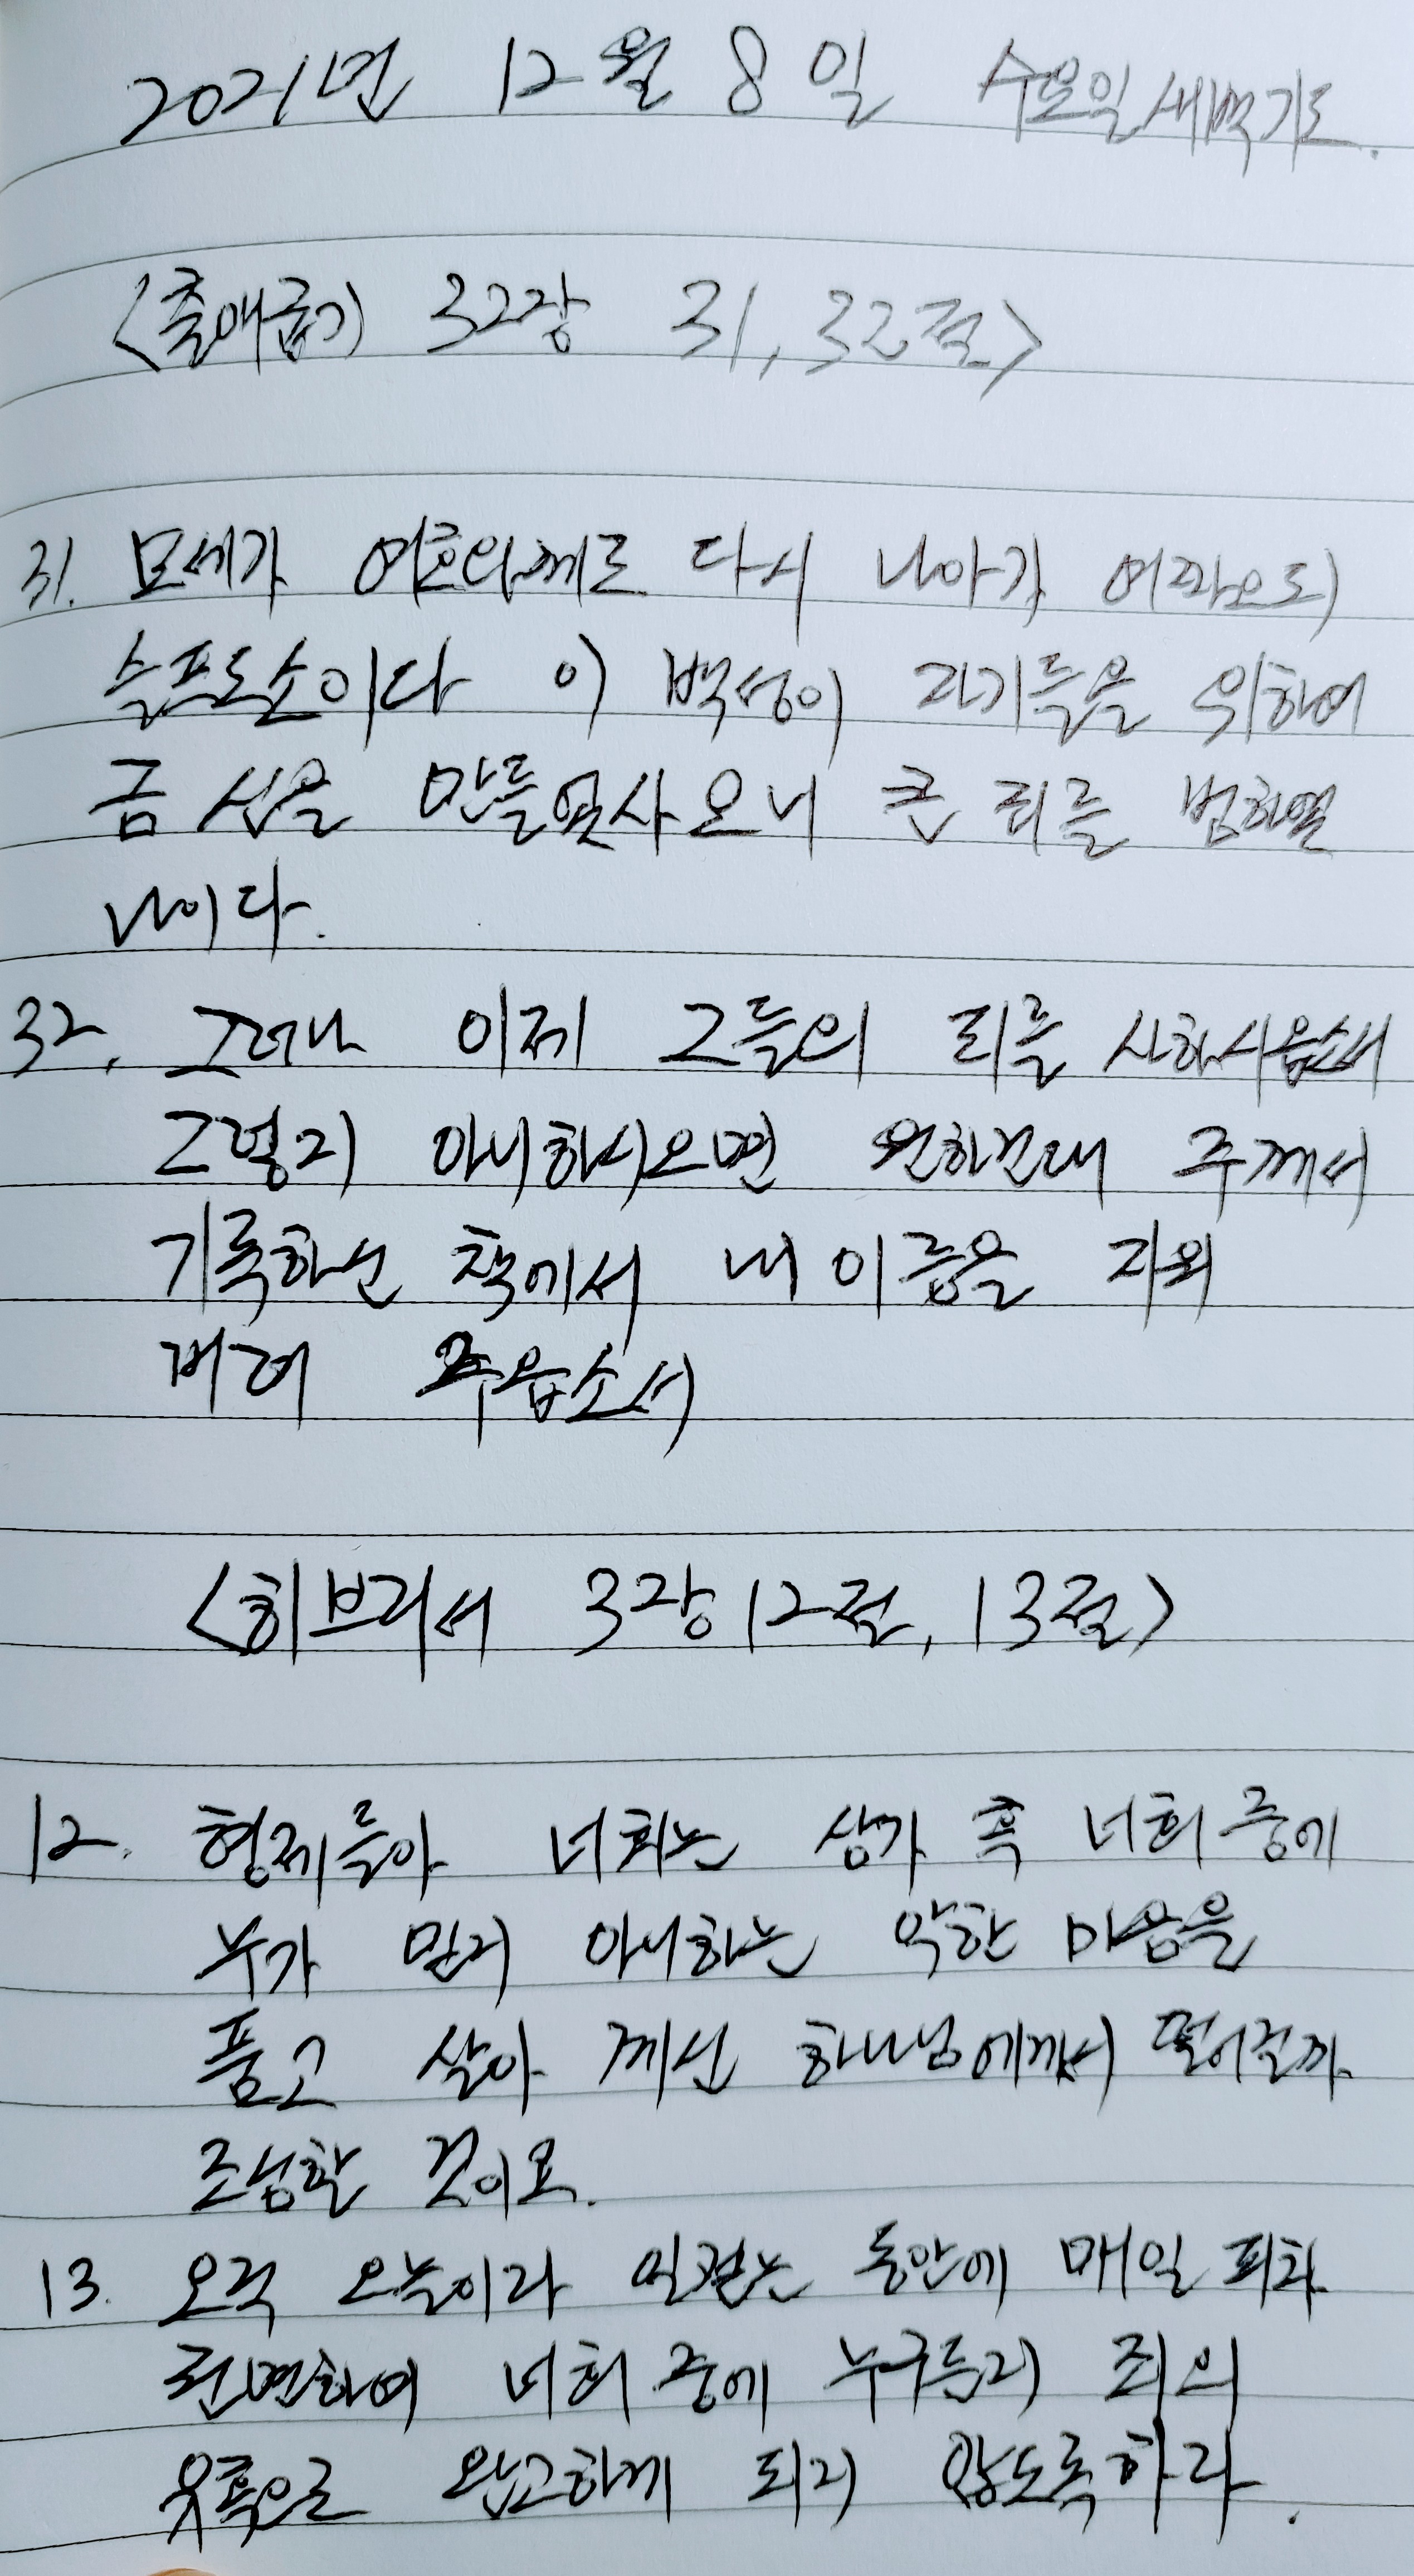 2021년 12월 8일 수요일 새벽기도.
<출애굽기 32장 31, 32절>
31. 모세가 여호와께로 다시 나아가 여짜오되
슬프도소이다 이 백성이 자기들을 위하여
금 신을 만들었사오니 큰 죄를 범하였
나이다.
32. 그러나 이제 그들의 죄를 사하시옵소서
그렇지 아니하시오면 원하건대 주께서
기록하신 책에서 내 이름을 지워
버려 주옵소서
<히브리서 3장 12절, 13절>
12. 형제들아 너희는 삼가 혹 너희 중에
누가 믿지 아니하는 악한 마음을
품고 살아 계신 하나님에게서 떨어질까
조심할 것이요.
13. 오직 오늘이라 일컫는 동안에 매일 피차
권면하여 너희 중에 누구든지 죄의
유혹으로 완고하게 되지 않도록 하라.